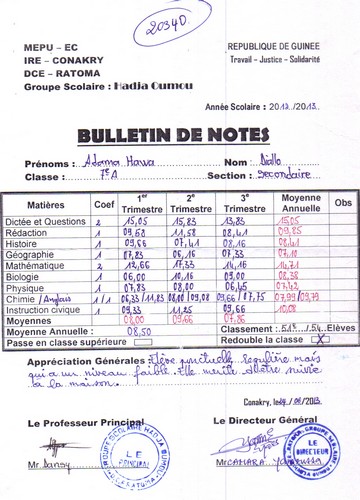 20340
MEPU – EC
REPUBLIQUE DE GUINEE
IRE – CONAKRY
Travail – Justice – Solidarité
DCE – RATOMA
Groupe Scolaire : Hadja Oumou
Année Scolaire : 2012./2013.
BULLETIN DE NOTES
Prénoms : Adama Hawa Nom : Diallo
Classe : 7e A Section : Secondaire
Matières Coef 1er Trimestre 2e Trimestre 3e Trimestre Moyenne Annuelle Obs
Dictée et Questions 2 15,05 15,83 13,83 15,05
Rédaction 1 09,58 11,58 08,41 09,85
Histoire 1 09,66 07,41 08,16 08,41
Géographie 1 07,83 06,16 07,33 07,10
Mathématique 2 12,66 17,33 14,16 14,71
Biologie 1 06,00 10,16 09,00 08,38
Physique 1 07,83 08,00 06,45 07,42
Chimie / Anglais 1/1 06,33/11,83 08,00/09,08 09,66/07,75 07,99/09,79
Instruction civique 1 09,33 11,25 09,66 10,08
Moyennes 08,00 09,66 07,86
Moyenne Annuelle : 08,50 Classement : 51e../54..Elèves
Passe en classe supérieure Redouble la classe X
Appréciation Générales : Elève ponctuelle, régulière mais
qui a un niveau faible. Elle merite d'être suivie
à la maison.
Conakry, le 14/06/2013
Le Professeur Principal
Le Directeur Général
GROUPE SCOLAIRE HADJA OUMOU
LE PRINCIPAL
LE DIRECTEUR
Mr CAMARA